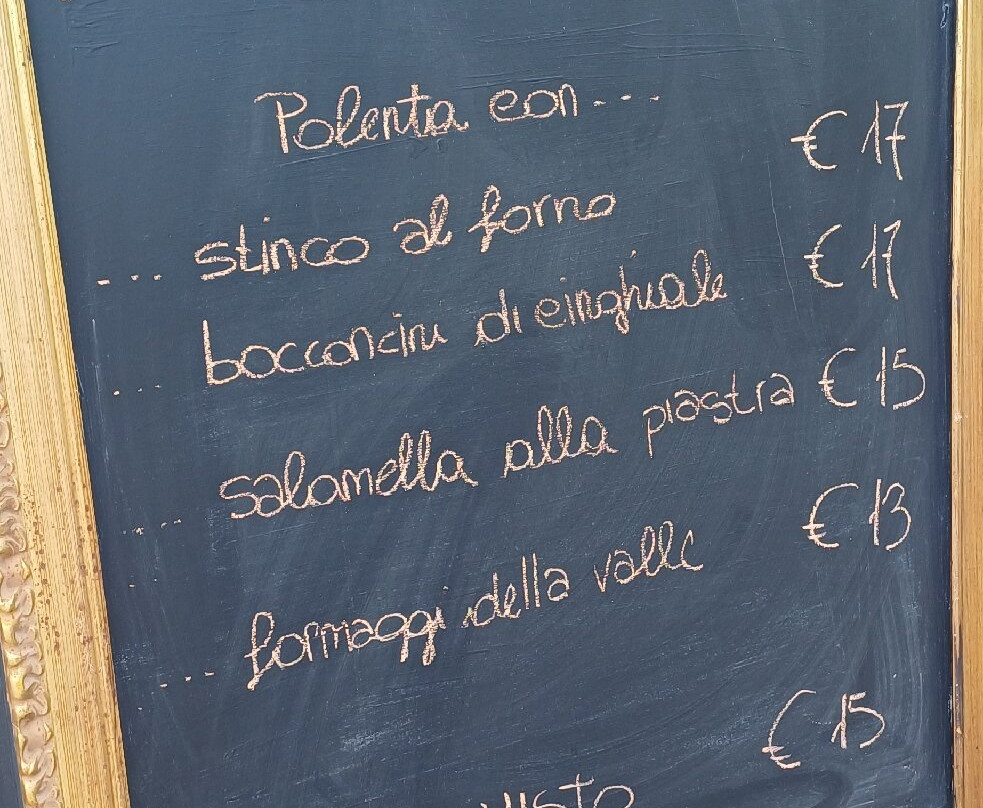 Polenta con....
... stinco al forno € 17
... bocconcini di cinghiale € 17
.... salamella alla piastra € 15
.... formaggi della valle € 13
€ 15